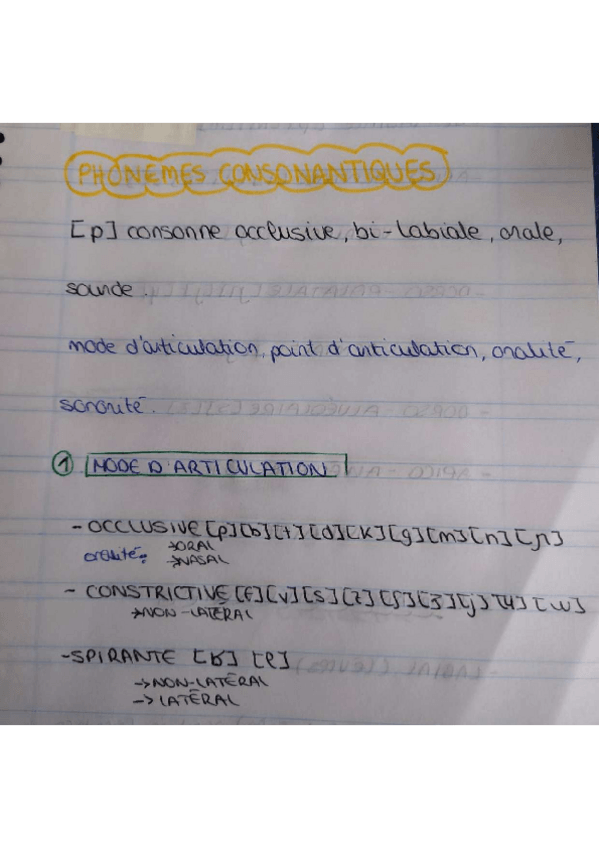 PHONÈMES CONSONANTIQUES
[p] consonne occlusive, bi-labiale, orale,
sourde.
mode d'articulation, point d'articulation, oralité,
sonorité.
① MODE D'ARTICULATION
- OCCLUSIVE [p][b][t][d][k][g][m][n][ɲ]
oralité: →ORAL
→NASAL
- CONSTRICTIVE [f][v][s][z][ʃ][ʒ][j][ɥ][w]
→NON-LATÉRAL
-SPIRANTE [ʁ] [l]
→NON-LATÉRAL
→LATÉRAL